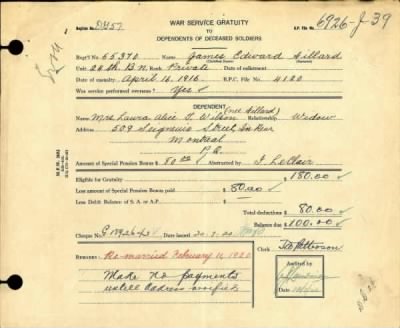 WAR SERVICE GRATUITY
TO
DEPENDENTS OF DECEASED SOLDIERS
Register No. D457
S.P. File No. 6926-J-39
Regt'l No. 65370 Name James Edward Aillard
Unit 24th Bn. Rank Private Date of enlistment
Date of casualty April 16, 1916. B.P.C. File No. 4120
Was service performed overseas? Yes
DEPENDENT
(nee Aillard)
Name Mrs Laura Alice Wilson Relationship Widow
Address 509 Seigneurs Street, In Rear
Montreal
P.Q.
Amount of Special Pension Bonus $ 80.00 Abstracted by J. LeClair
Eligible for Gratuity $ 180.00
Less amount of Special Pension Bonus paid $ 80.00
Less Debit Balance of S.A. or A.P. $
Total deductions $ 80.00
Balance due $ 100.00
Cheque No. Date issued
Clerk
REMARKS: Re-married February 11, 1920
Audited by
Make no payments
until address verified